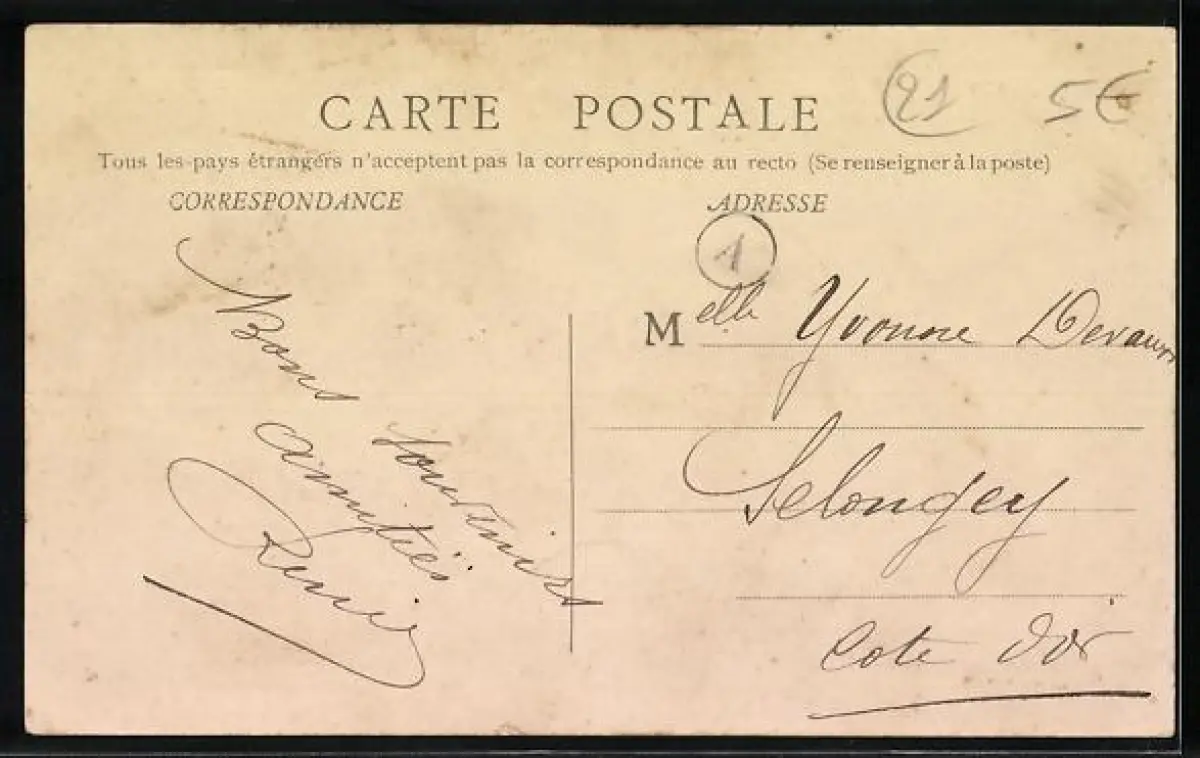 CARTE POSTALE
21
5€
Tous les pays étrangers n'acceptent pas la correspondance au recto (Se renseigner à la poste)
CORRESPONDANCE
Bons souvenirs
amitiés
ADRESSE
1
Melle Yvonne Devaux
Selongey
Cote d'or